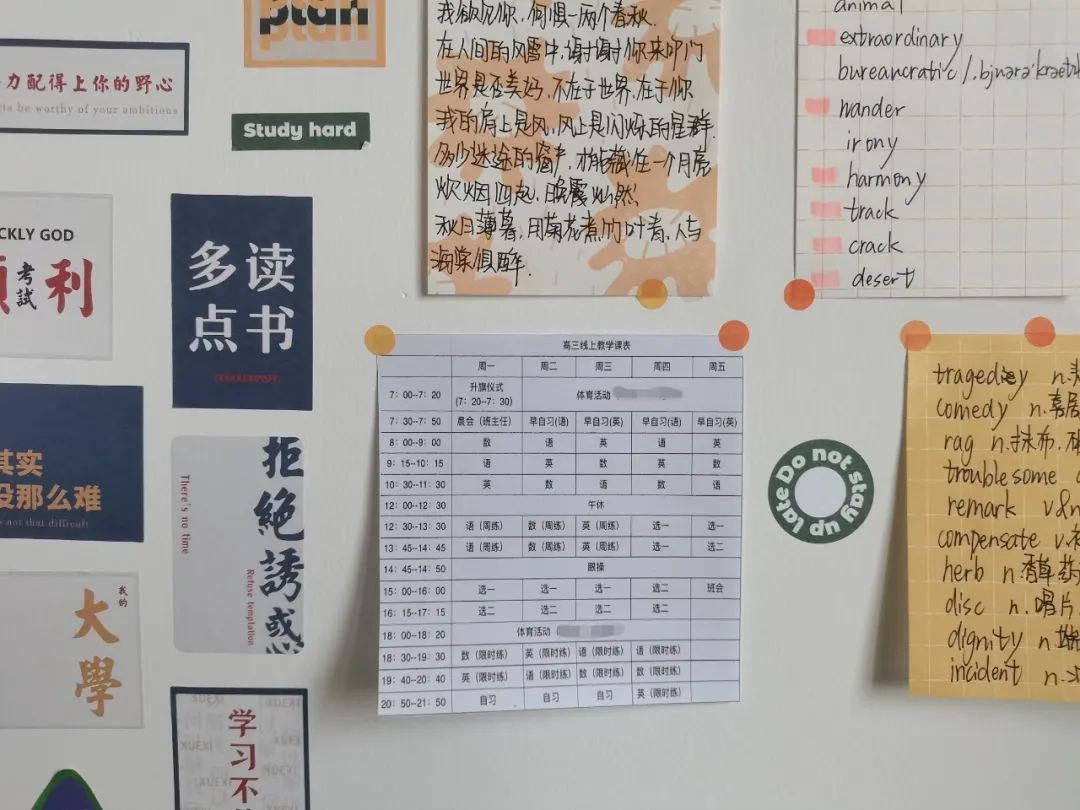 plan
力配得上你的野心
be worthy of your ambitions
Study hard
CKLY GOD
考試
利
多读
点书
其实
没那么难
not that difficult
拒絕誘惑
There's no time
Refuse temptation
我的
大學
XUEXI
学习不
在人间的风雪中,谢谢你来叩门
世界是否美好,不在于世界,在于你
我的肩上是风,风上是闪烁的星群
炊烟四起,晚霞灿然
秋日薄暮,用菊花煮竹叶青,人与
海棠俱醉.
animal
extraordinary
bureaucratic
wander
irony
harmony
track
crack
desert
高三线上教学课表
周一 周二 周三 周四 周五
7: 00--7: 20 升旗仪式 (7: 20--7: 30) 体育活动
7: 30--7: 50 晨会(班主任) 早自习(语) 早自习(英) 早自习(语) 早自习(英)
8: 00--9: 00 数 语 英 语 英
9: 15--10: 15 语 英 数 英 数
10: 30--11: 30 英 数 语 数 语
12: 00--12: 30 午休
12: 30--13: 30 语(周练) 数(周练) 英(周练) 选一 选一
13: 45--14: 45 语(周练) 数(周练) 英(周练) 选一 选二
14: 45--14: 50 眼操
15: 00--16: 00 选一 选一 选一 选二 班会
16: 15--17: 15 选二 选二 选二 选二
18: 00--18: 20 体育活动
18: 30--19: 30 数(限时练) 英(限时练) 语(限时练) 语(限时练)
19: 40--20: 40 英(限时练) 语(限时练) 数(限时练) 数(限时练)
20: 50--21: 50 自习 自习 自习 英(限时练)
Do not stay up late
tragedy n.
comedy n.喜剧
rag n.抹布.
troublesome
remark v&n
compensate v.
herb n.香草
disc n.唱片
dignity n.
incident n.